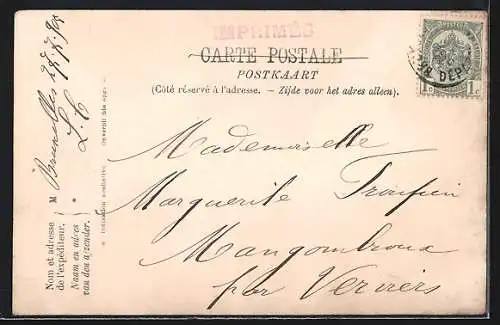 IMPRIMÉS
CARTE POSTALE
POSTKAART
(Côté réservé à l'adresse. – Zijde voor het adres alleen).
1c 1c
DEPART
Mademoiselle
Marguerite
Mangombroux
par Verviers
Nom et adresse
de l'expéditeur.
Naam en adres
van den afzender.
M Bruxelles
L. C